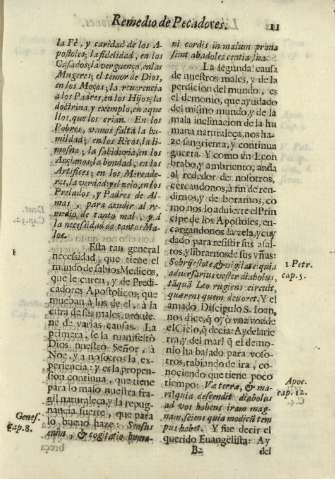 Remedio de Pecadores. 11
la Fè, y caridad de los A-
postoles; la fidelidad, en los
Casados; la verguença, en las
Mugeres; el temor de Dios,
en los Moços; la reuerencia
à los Padres, en los Hijos; la
doctrina, y exemplo, en aque
llos, que los crian. En los
Pobres, vemos falta la hu-
mildad; en los Ricos, la li-
mosna; la sabiduria, en los
Ancianos; la bondad, en los
Artifices; en los Mercade-
res, la verdad; y el zelo, en los
Prelados, y Padres de Al-
mas, para acudir al re-
medio de tanto mal, y à
la necessidad de tantos Ma-
los.
Esta tan general
necessidad, que tiene el
mundo de sabios Medicos,
que le curen, y de Predi-
cadores Apostolicos, que
mueban à luz de el, à la
cura de sus males, nos vie-
ne de varias causas. La
primera, se la manifestò
Dios, nuestro Señor, à
Noe, y a nosotros la ex-
periencia; y es la propen-
sion continua, que tiene
para lo malo nuestra fra-
gil naturaleza, y la repug-
nancia fuerte, que para
lo bueno haze: Sensus
enim, & cogitatio huma-
Genes.
cap. 8.
ni cordis in malum prona
sunt ab adolescentia sua.
La segunda causa
de nuestros males, y de la
perdicion del mundo, es
el demonio, que ayudado
del mismo mundo, y de la
mala inclinacion de la hu
mana naturaleza, nos ha-
ze sangrienta, y continua
guerra. Y como vn Leon
brabo, y ambriento, anda
al rededor de nosotros,
cercandonos, à fin de ren-
dirnos, y deborarnos, co
mo nos lo aduierte el Prin
cipe de los Apostoles, en-
cargandonos la vela, y cuy
dado para resistir sus assal-
tos, y librarnos de sus vñas:
Sobrij estote, & vigilate quia
aduersarius vester diabolus,
tãquã Leo rugiens circuit,
quærens quem deuoret. Y el
amado Discipulo S. Ioan,
nos dice, q̃ oyò vna voz de
el Cielo, q̃ decia: Ay de la tie
rra, y del mar! q̃ el demo-
nio ha baxado para voso-
tros, rabiando de ira, co-
nociendo que tiene poco
tiempo: Væ terræ, & ma-
ri, quia descendit diabolus
ad vos habens iram mag-
nam, sciens quia modicũ tem
pus habet. Y fue decir el
querido Euangelista: Ay
1 Petr.
cap. 5.
Apoc.
cap. 12.
B2 del